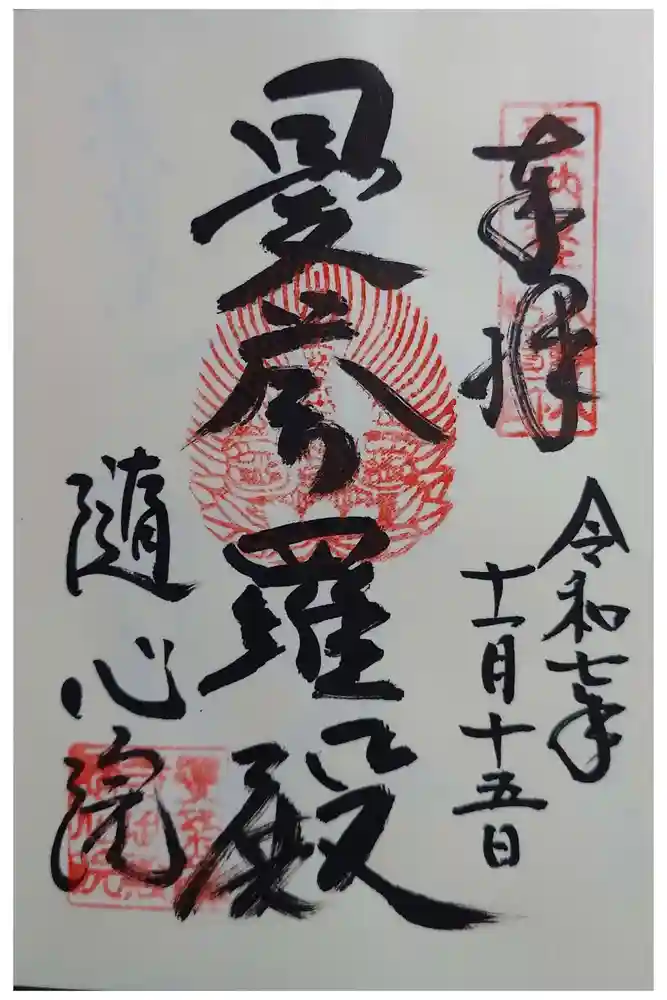 奉拝
令和七年
十一月十五日
曼荼羅殿
隨心院